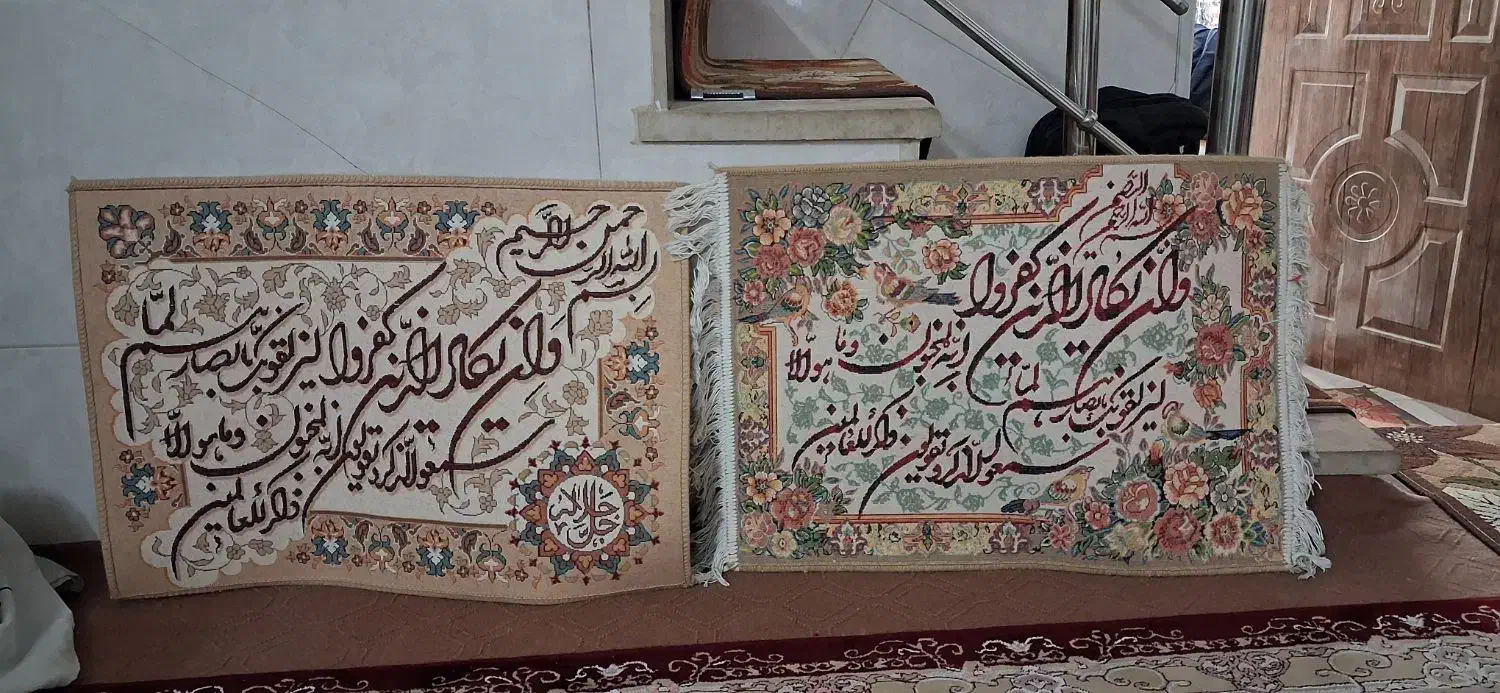 بسم الله الرحمن الرحیم
وان یکاد الذین کفروا لیزلقونک بابصارهم لمّا
سمعوا الذکر و یقولون انه لمجنون وما هو الّا
ذکر للعالمین
جل جلاله
بسم الله الرحمن الرحیم
وان یکاد الذین کفروا
لیزلقونک بابصارهم لمّا
سمعوا الذکر و یقولون انه لمجنون وما هو الّا
ذکر للعالمین